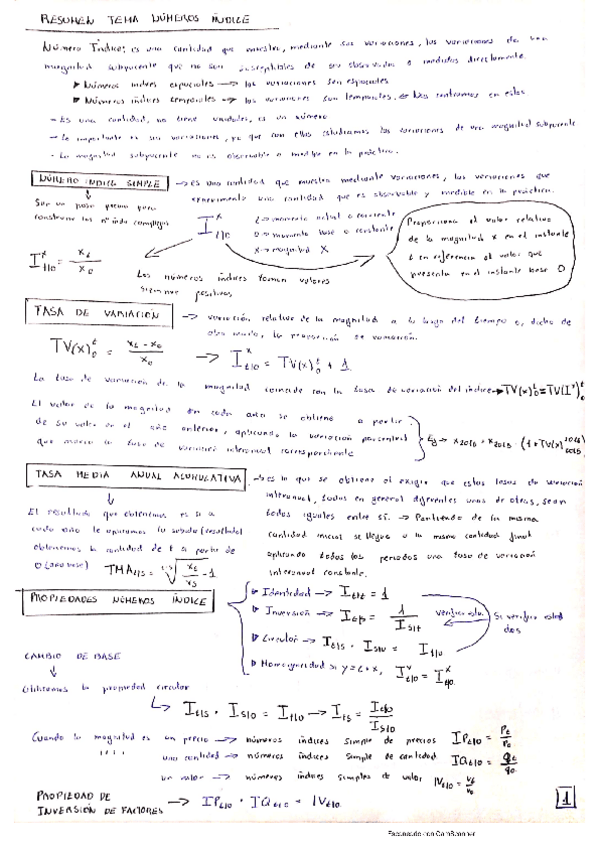 RESUMEN TEMA NÚMEROS ÍNDICE
Número Índice: es una cantidad que muestra, mediante sus variaciones, las variaciones de una
magnitud subyacente que no son susceptibles de ser observadas o medidas directamente.
▸ Números índices espaciales → las variaciones son espaciales
▸ Números índices temporales → las variaciones son temporales, nos centramos en estos
- Es una cantidad, no tiene unidades, es un número
- Lo importante es sus variaciones, ya que con ellas estudiamos las variaciones de una magnitud subyacente
- La magnitud subyacente no es observable o medible en la práctica.
NÚMERO INDICE SIMPLE → es una cantidad que muestra mediante variaciones, las variaciones que
experimenta una cantidad que es observable y medible en la práctica.
Son un paso previo para
construir los nº índ complejos
I^x_t|0
t → momento actual o corriente
0 → momento base o constante
x → magnitud X
Proporciona el valor relativo
de la magnitud x en el instante
t en referencia al valor que
presenta en el instante base 0
I^x_t|0 = x_t / x_0
Los números índices toman valores
siempre positivos
TASA DE VARIACIÓN → variación relativa de la magnitud a lo largo del tiempo o, dicho de
otro modo, la proporción de variación.
TV(x)^t_0 = (x_t - x_0) / x_0 → I^x_t|0 = TV(x)^t_0 + 1
La tasa de variación de la magnitud coincide con la tasa de variación del índice → TV(x)^t_0 = TV(I^x)^t_0
El valor de la magnitud en cada año se obtiene a partir
de su valor en el año anterior, aplicando la variación porcentual
que marca la tasa de variación interanual correspondiente
Ej → x2016 = x2015 · (1 + TV(x)^2016_2015
TASA MEDIA ANUAL ACUMULATIVA → es lo que se obtiene al exigir que estas tasas de variación
interanual, todas en general diferentes unas de otras, sean
todas iguales entre sí. → Partiendo de la misma
cantidad inicial se llegue a la misma cantidad final
aplicando todos los periodos una tasa de variación
interanual constante.
El resultado que obtenemos es si a
cada año le aplicamos la subida (resultado)
obtenemos la cantidad de t a partir de
0 (año base) TMA_t|s = ^t-s√(x_t / x_s) - 1
PROPIEDADES NÚMEROS ÍNDICE
▸ Identidad → I_t|t = 1
▸ Inversión → I_t|s = 1 / I_s|t
▸ Circular → I_t|s · I_s|0 = I_t|0
▸ Homogeneidad si y = k · x, I^y_t|0 = I^x_t|0
Si verifica estas
dos
verifica esta
CAMBIO DE BASE
Utilizamos la propiedad circular
I_t|s · I_s|0 = I_t|0 → I_ts = I_t|0 / I_s|0
Cuando la magnitud es un precio → números índices simple de precios IP_t|0 = P_t / P_0
" " " una cantidad → números índices simple de cantidad IQ_t|0 = q_t / q_0
un valor → números índices simples de valor IV_t|0 = V_t / V_0
PROPIEDAD DE
INVERSIÓN DE FACTORES → IP_t|0 · IQ_t|0 = IV_t|0
1
Escaneado con CamScanner